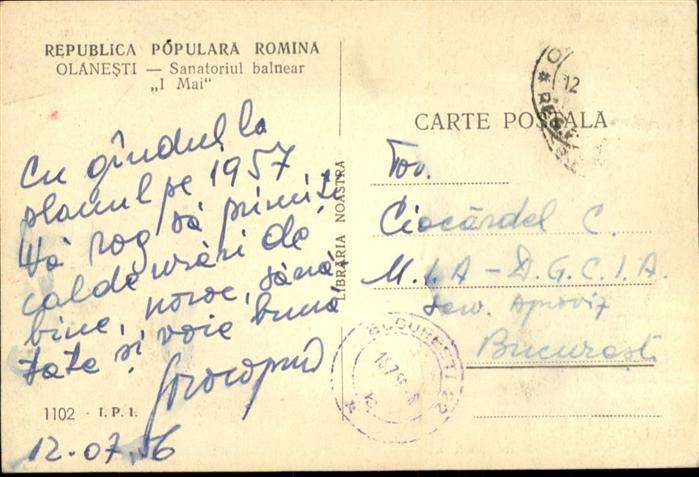 REPUBLICA POPULARA ROMINA
OLĂNEȘTI — Sanatoriul balnear
„I Mai“
Cu gîndul la
planul pe 1957
Vă rog să primiți
calde urări de
bine, noroc, sănă-
tate și voie bună
1102 - I. P. 1.
12.07.56
LIBRĂRIA NOASTRĂ
CARTE POȘTALĂ
Tov.
Ciocârdel C.
M.I.A - D.G.C.I.A.
Serv. Aproviz
București
12
BUCUREȘTI 22